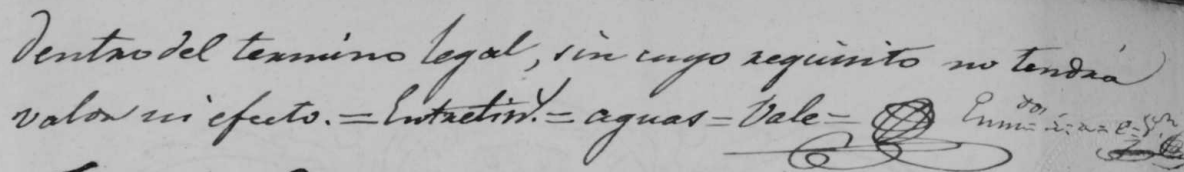 dentro del termino legal, sin cuyo requisito no tendrá
valor ni efecto.=Entrelin.^s=aguas=Vale=